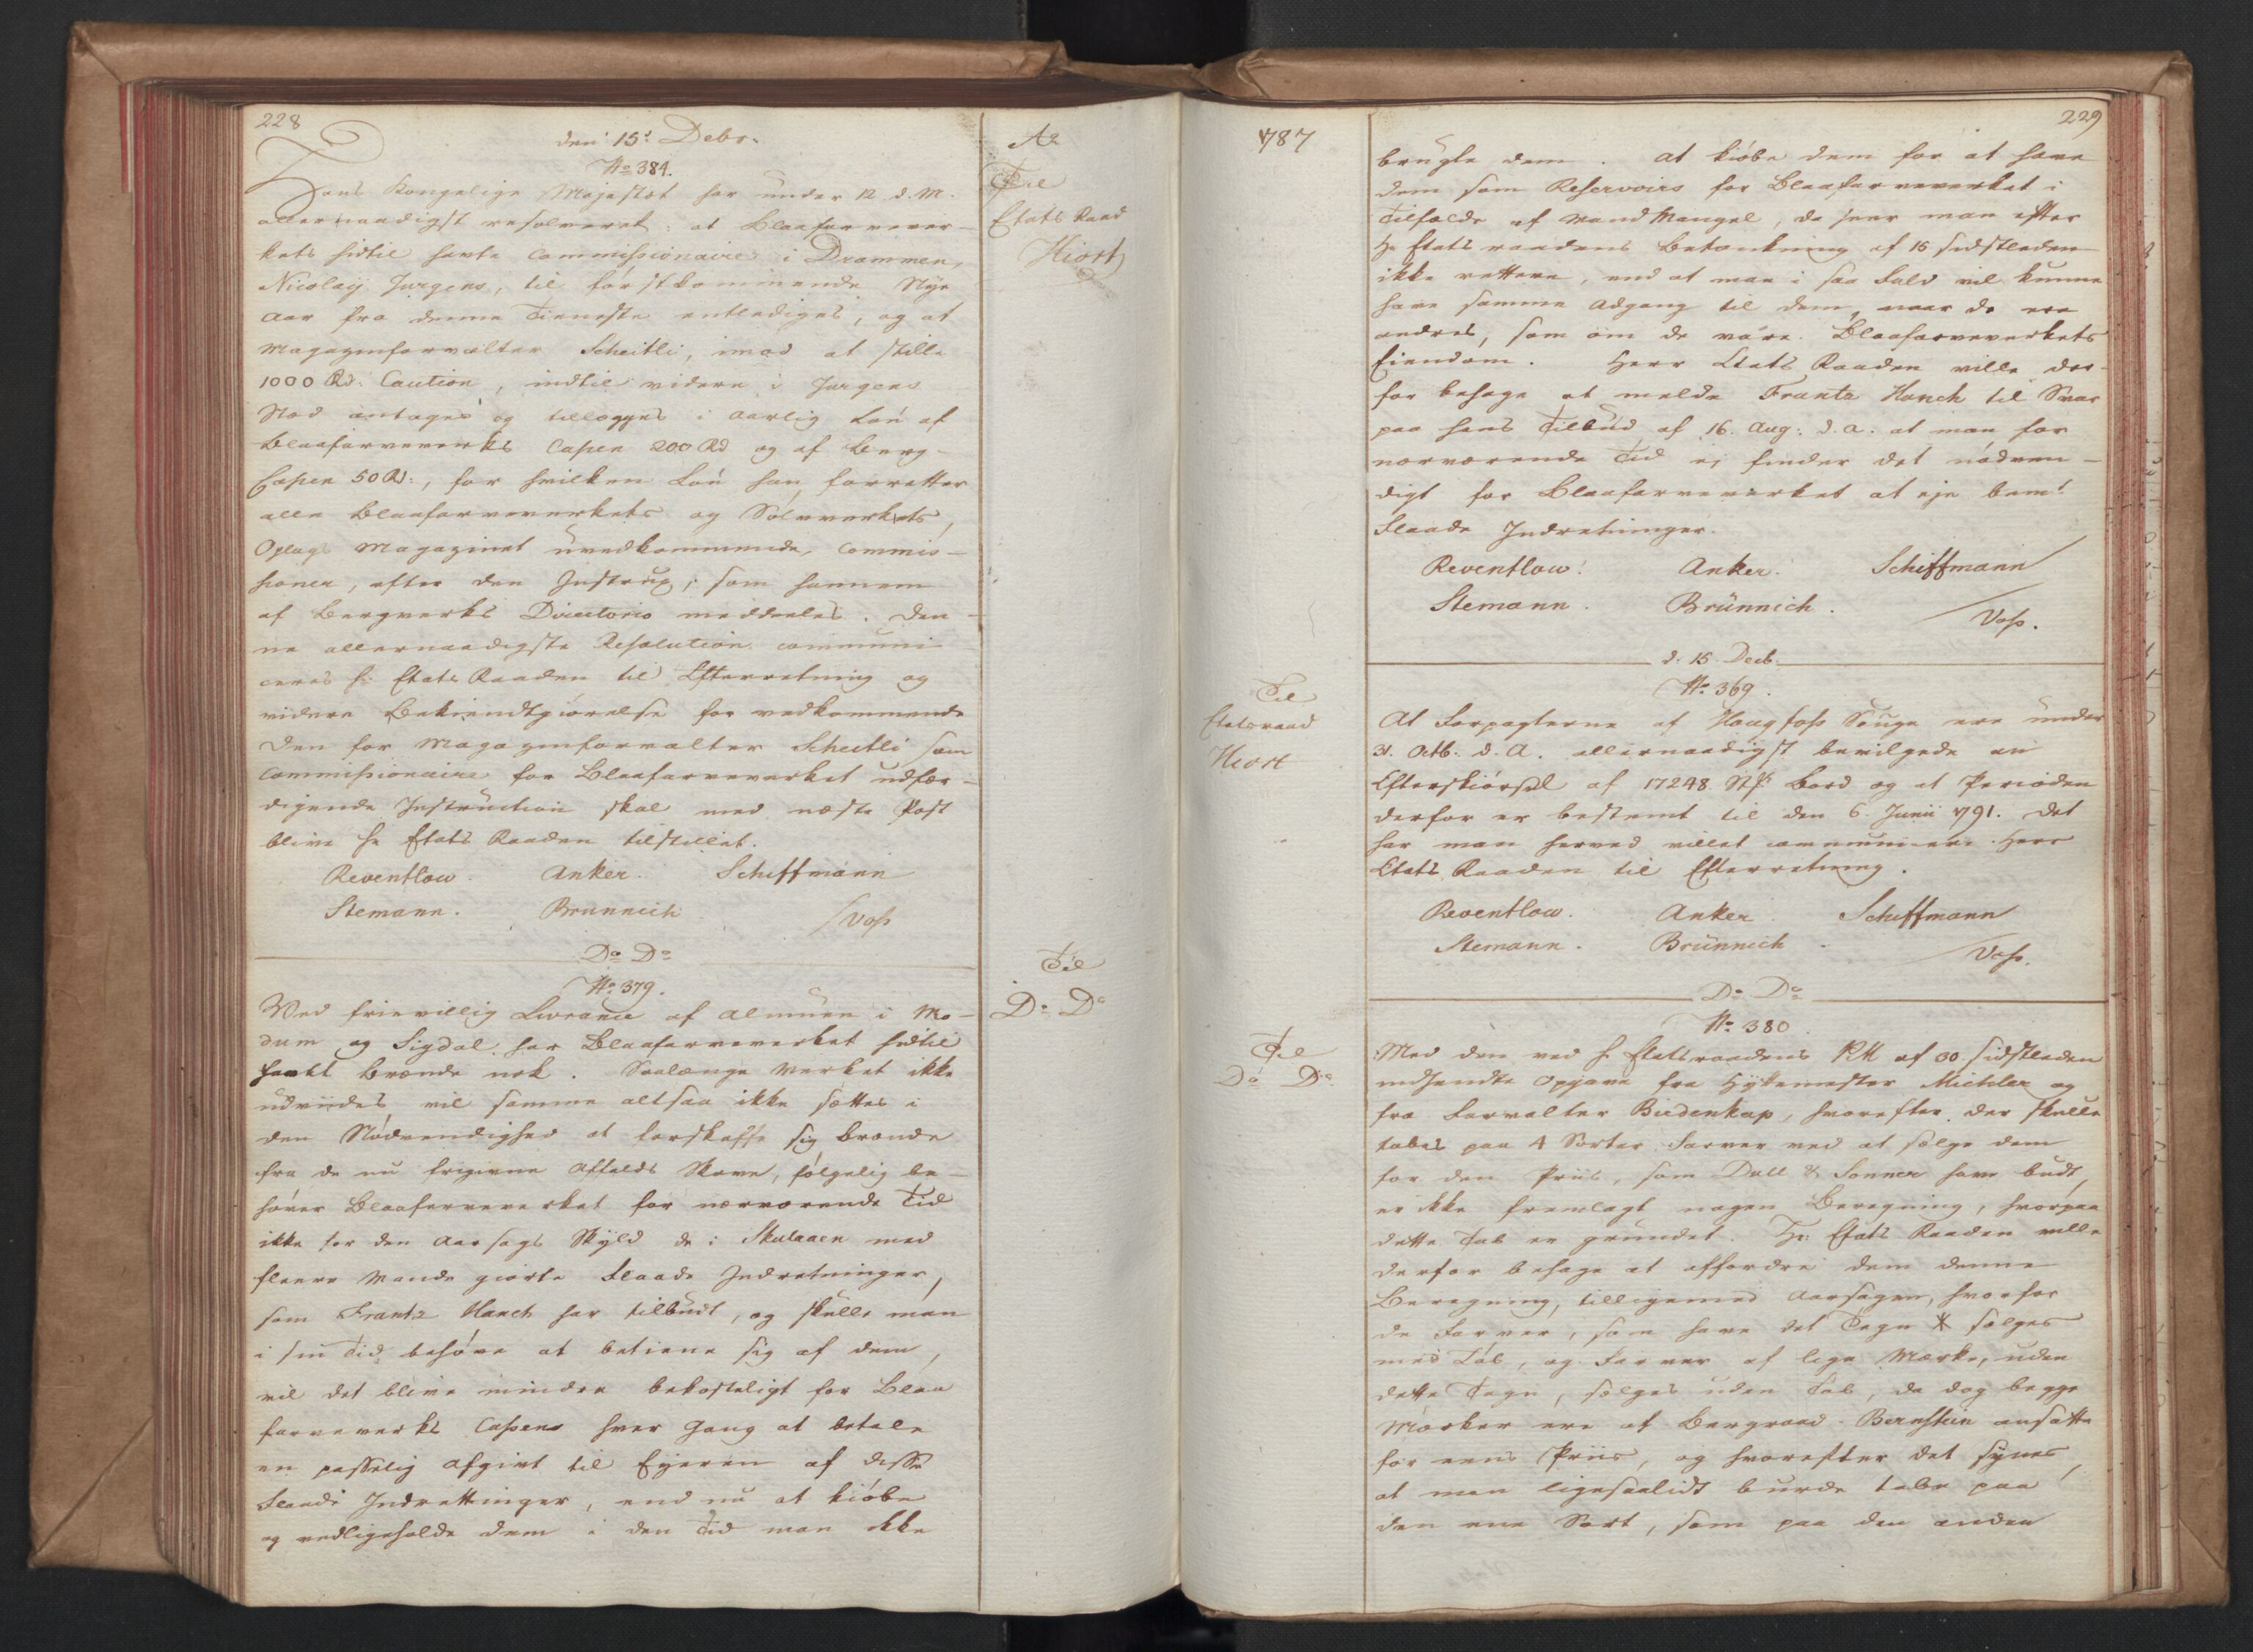 228
den 15.' Debr.
No 384.
Hans Kongelige Majestæt har under 12 d. M.
allernaadigst resolveret: at Blaafarvever-
kets hidtil havte Commissionaire i Drammen,
Nicolay Jurgens, til førstkommende Nye
Aar fra denne Tieneste entlediges, og at
Magazinforvalter Scheitli, imod at stille
1000 Rd: Caution, indtil videre i Jurgens
Stæd antages og tillægges i aarlig Løn af
Blaafarveverkets Cassen 200 Rd og af Berg-
Cassen 50 Rd:, for hvilken Løn han forretter
alle Blaafarveverkets og Sølvverkets,
Oplags Magazinet uvedkommende, Commis-
sioner, efter den Instrux, som hannem
af Bergverks Directorio meddeles. Den-
ne allernaadigste Resolution communi-
ceres Hr Etats Raaden til Efterretning og
videre Bekiendtgiørelse for vedkommende
Den for Magazinforvalter Scheitli som
Commissionaire for Blaafarveverket udfær-
digende Instruction skal med næste Post
blive Hr Etats Raaden tilstillet.
Reventlow. Anker. Schiffmann
Stemann. Brunnich /Voss
Ao
Til
Etats Raad
Hiort
Do Do
No 379.
Til
Do Do
Ved frievillig Livrance af Almuen i Mo-
dum og Sigdal har Blaafarveverket hidtil
havt Brænde nok. Saalænge Verket ikke
udvides, vil samme altsaa ikke sættes i
den Nødvendighed at forskaffe sig Brænde
fra de nu frigivne Affalds Skove, følgelig be-
høver Blaafarveverket for nærværende Tid
ikke for den Aarsags Skyld de i Skulaaen med
fleere Vande giorte Flaade Indretninger,
som Frantz Hauch har tilbudt, og skulle man
i sin Tid behøve at betiene sig af dem,
vil det blive mindre bekosteligt for Blaa
farveverks Cassen hver Gang at betale
en passelig Afgivt til Eyeren af disse
Flaade Indrettinger, end nu at kiøbe
og vedligeholde dem i den Tid man ikke
787
229
brugte dem. At kiøbe dem for at have
dem som Reservoirs for Blaafarveverket i
Tilfælde af Vand Mangel, da seer man efter
Hr Etats raadens Betænkning af 15 sidstleden
ikke rettere, end at man i saa Fald vil kunne
have samme Adgang til dem, naar de ere
andres, som om de vare Blaafarveverkets
Eiendom. Herr Etats Raaden ville der-
for behage at melde Frantz Hauch til Svar
paa hans Tilbud af 16. Aug: d. a. at man for
nærværende Tid ej finder det nødven-
digt for Blaafarveverket at eje bemt
Flaade Indretninger.
Reventlow. Anker. Schiffmann
Stemann. Brünnich. /Voss.
d. 15. Decb.
No. 369.
Til
Etatsraad
Hiort
At Forpagterne af Haugfoss Sauge ere under
31. Octb. d. A. allernaadigst bevilgede en
Efterskiørsel af 17248 St. Bord og at Perioden
derfor er bestemt til den 6. Junii 791. Det
har man herved villet communicere Herr
Etats Raaden til Efterretning.
Reventlow. Anker. Schiffmann
Stemann. Brünnich. /Voss.
Do Do
No. 380.
Til
Do Do
Med den ved Hr Etatsraadens PM af 30 sidstleden
indsendte Opgave fra Hyttemester Michler og
fra Forvalter Biedenkap, hvorefter der skulle
tabes paa 4 Sorter Farver ved at sælge dem
for den Priis, som Dull & Sonner have budt,
er ikke fremlagt nogen Beregning, hvorpaa
dette Tab er grundet. Hr: Etats Raaden ville
derfor behage at affordre dem denne
Beregning, tilligemed Aarsagen, hvorfor
de Farver, som have det Tegn * sælges
med Tab, og Farver af lige Mærke, uden
dette Tegn, sælges uden Tab, da dog begge
Mærker ere af Bergraad Bernstein ansatte
for eens Priis, og hvorefter det synes,
at man ligesaalidt burde tabe paa
den ene Sort, som paa den anden